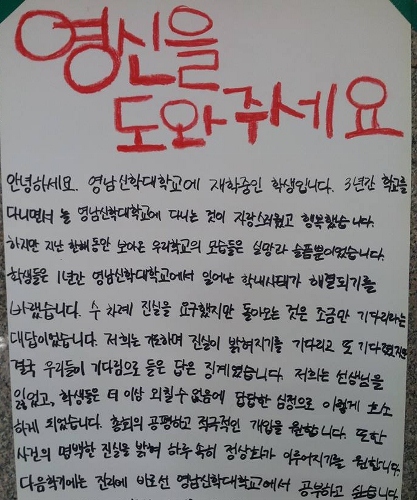 영신을
도와주세요
안녕하세요. 영남신학대학교에 재학중인 학생입니다. 3년간 학교를
다니면서 늘 영남신학대학교에 다니는 것이 자랑스러웠고 행복했습니다.
하지만 지난 한해동안 보아온 우리학교의 모습들은 실망과 슬픔뿐이었습니다.
학생들은 1년간 영남신학대학교에서 일어난 학내사태가 해결되기를
바랬습니다. 수 차례 진실을 요구했지만 돌아오는 것은 조금만 기다리라는
대답이었습니다. 저희는 기도하며 진실이 밝혀지기를 기다리고 또 기다렸지만
결국 우리들이 기다림으로 들은 답은 징계였습니다. 저희는 선생님을
잃었고, 학생들은 더 이상 외칠 수 없음에 답답한 심정으로 이렇게 호소
하게 되었습니다. 총회의 공평하고 적극적인 개입을 원합니다. 또한
사건의 명백한 진실을 밝혀 하루 속히 정상화가 이루어지기를 원합니다.
다음학기에는 진리에 바로선 영남신학대학교에서 공부하고 싶습니다.